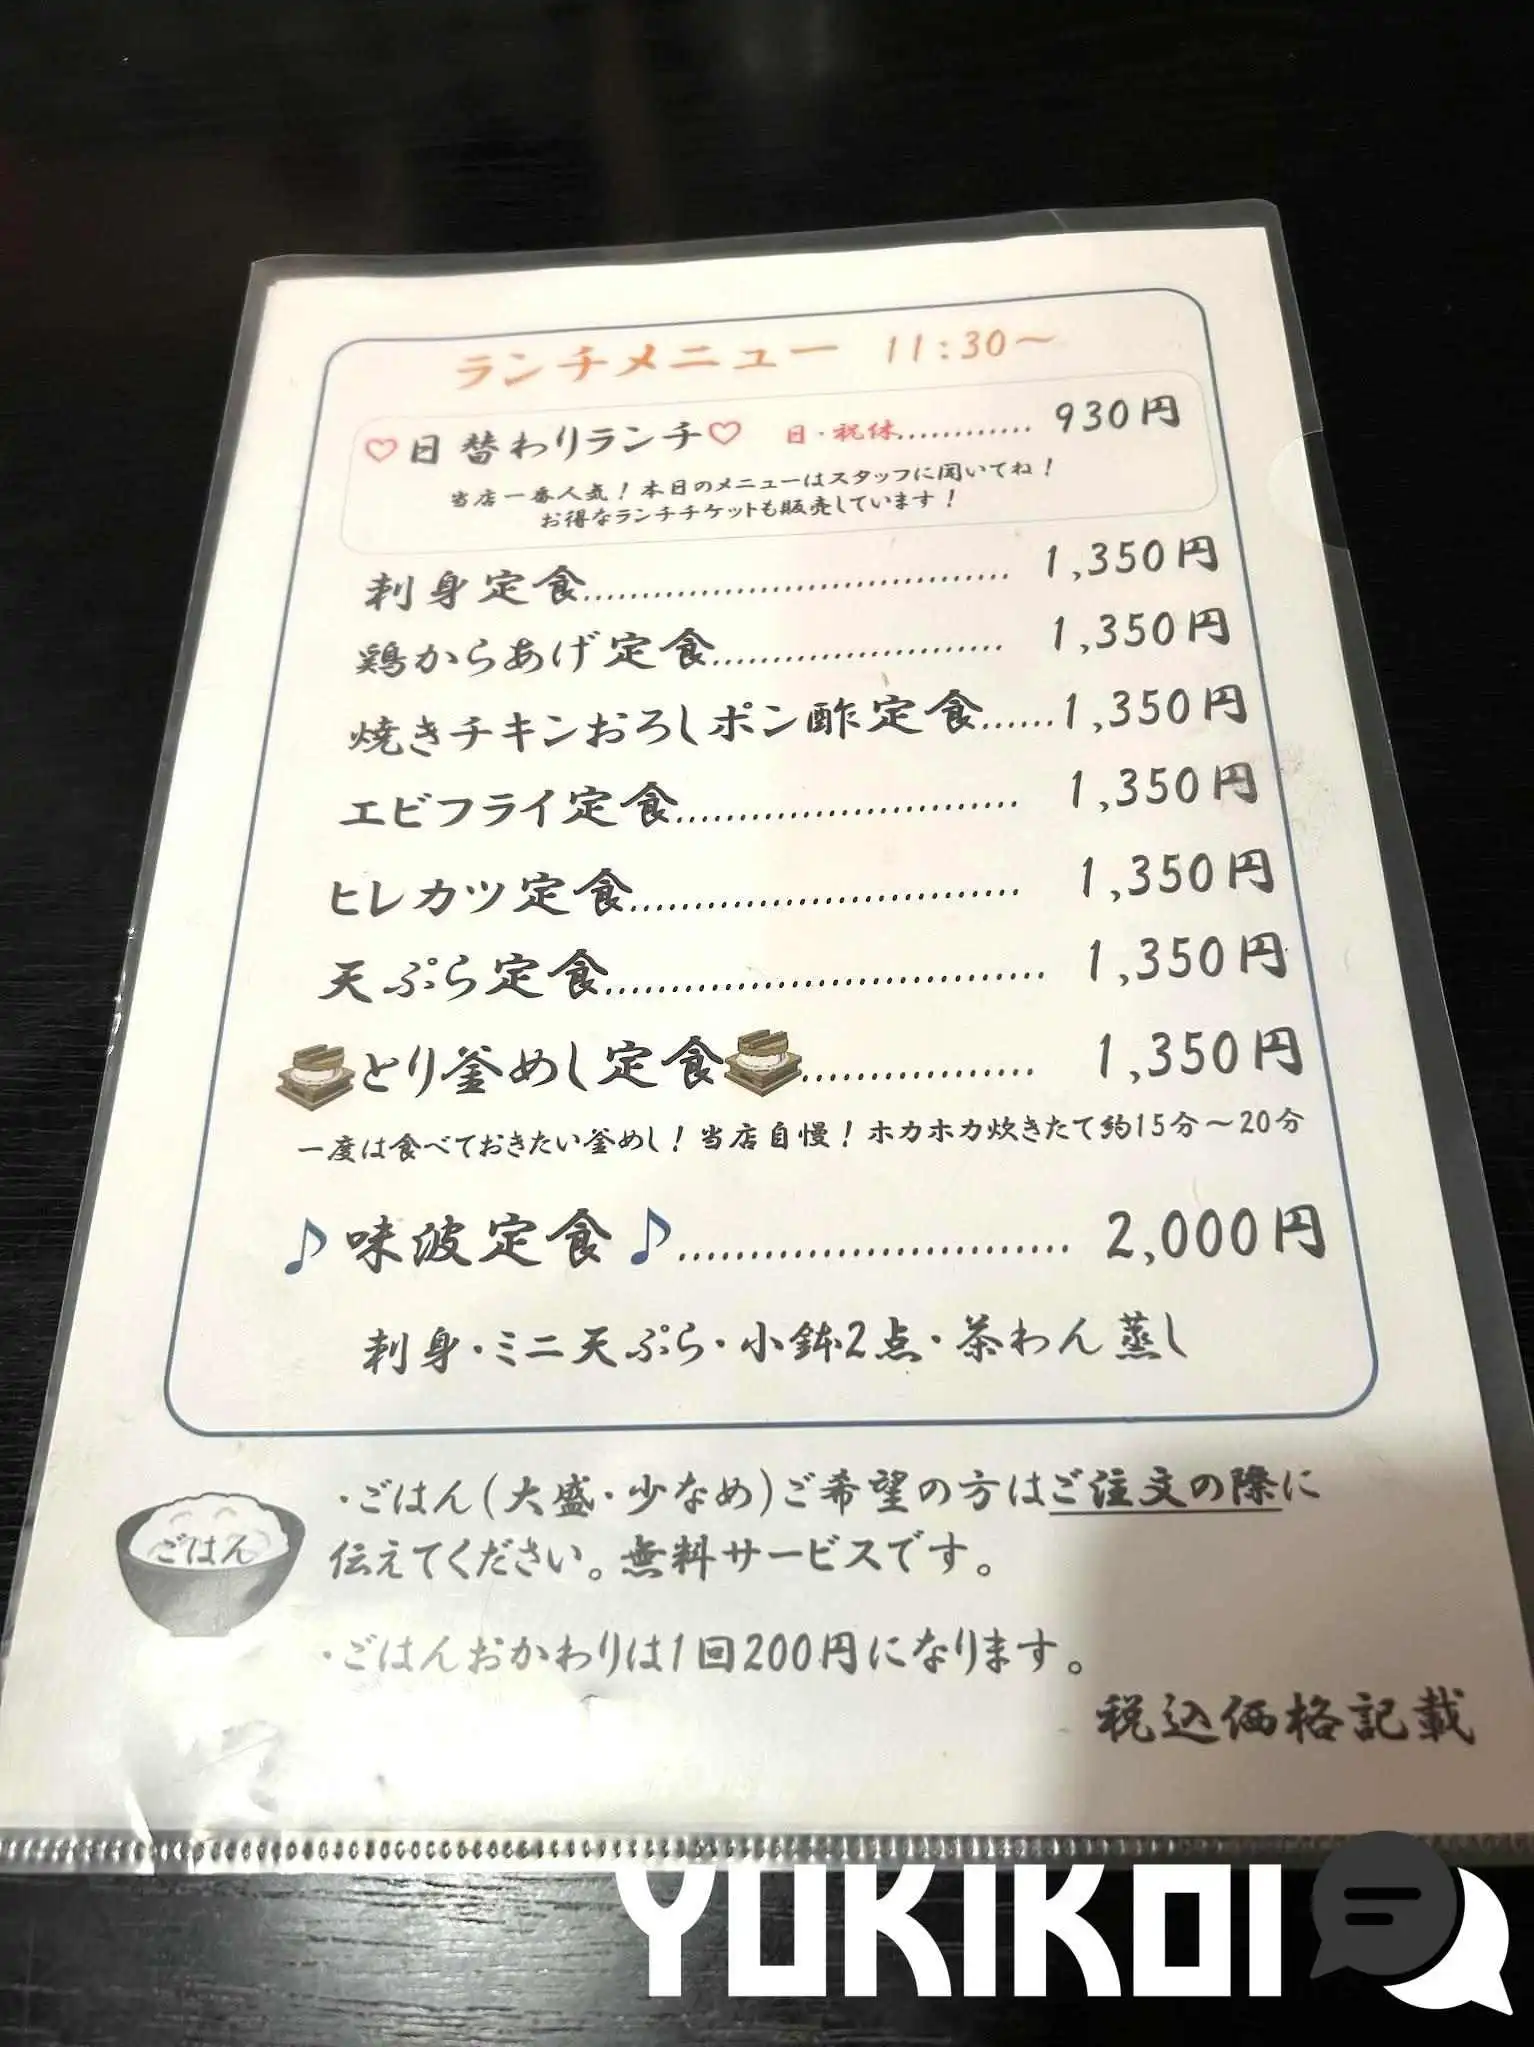 ランチメニュー 11:30～
♡日替わりランチ♡ 日・祝休............ 930円
当店一番人気！本日のメニューはスタッフに聞いてね！
お得なランチチケットも販売しています！
刺身定食.................................... 1,350円
鶏からあげ定食......................... 1,350円
焼きチキンおろしポン酢定食......1,350円
エビフライ定食............................. 1,350円
ヒレカツ定食................................. 1,350円
天ぷら定食..................................... 1,350円
とり釜めし定食................... 1,350円
一度は食べておきたい釜めし！当店自慢！ホカホカ炊きたて約15分～20分
♪味波定食♪............................... 2,000円
刺身・ミニ天ぷら・小鉢2点・茶わん蒸し
・ごはん(大盛・少なめ)ご希望の方はご注文の際に
伝えてください。無料サービスです。
ごはん
・ごはんおかわりは1回200円になります。
税込価格記載
YUKIKOI